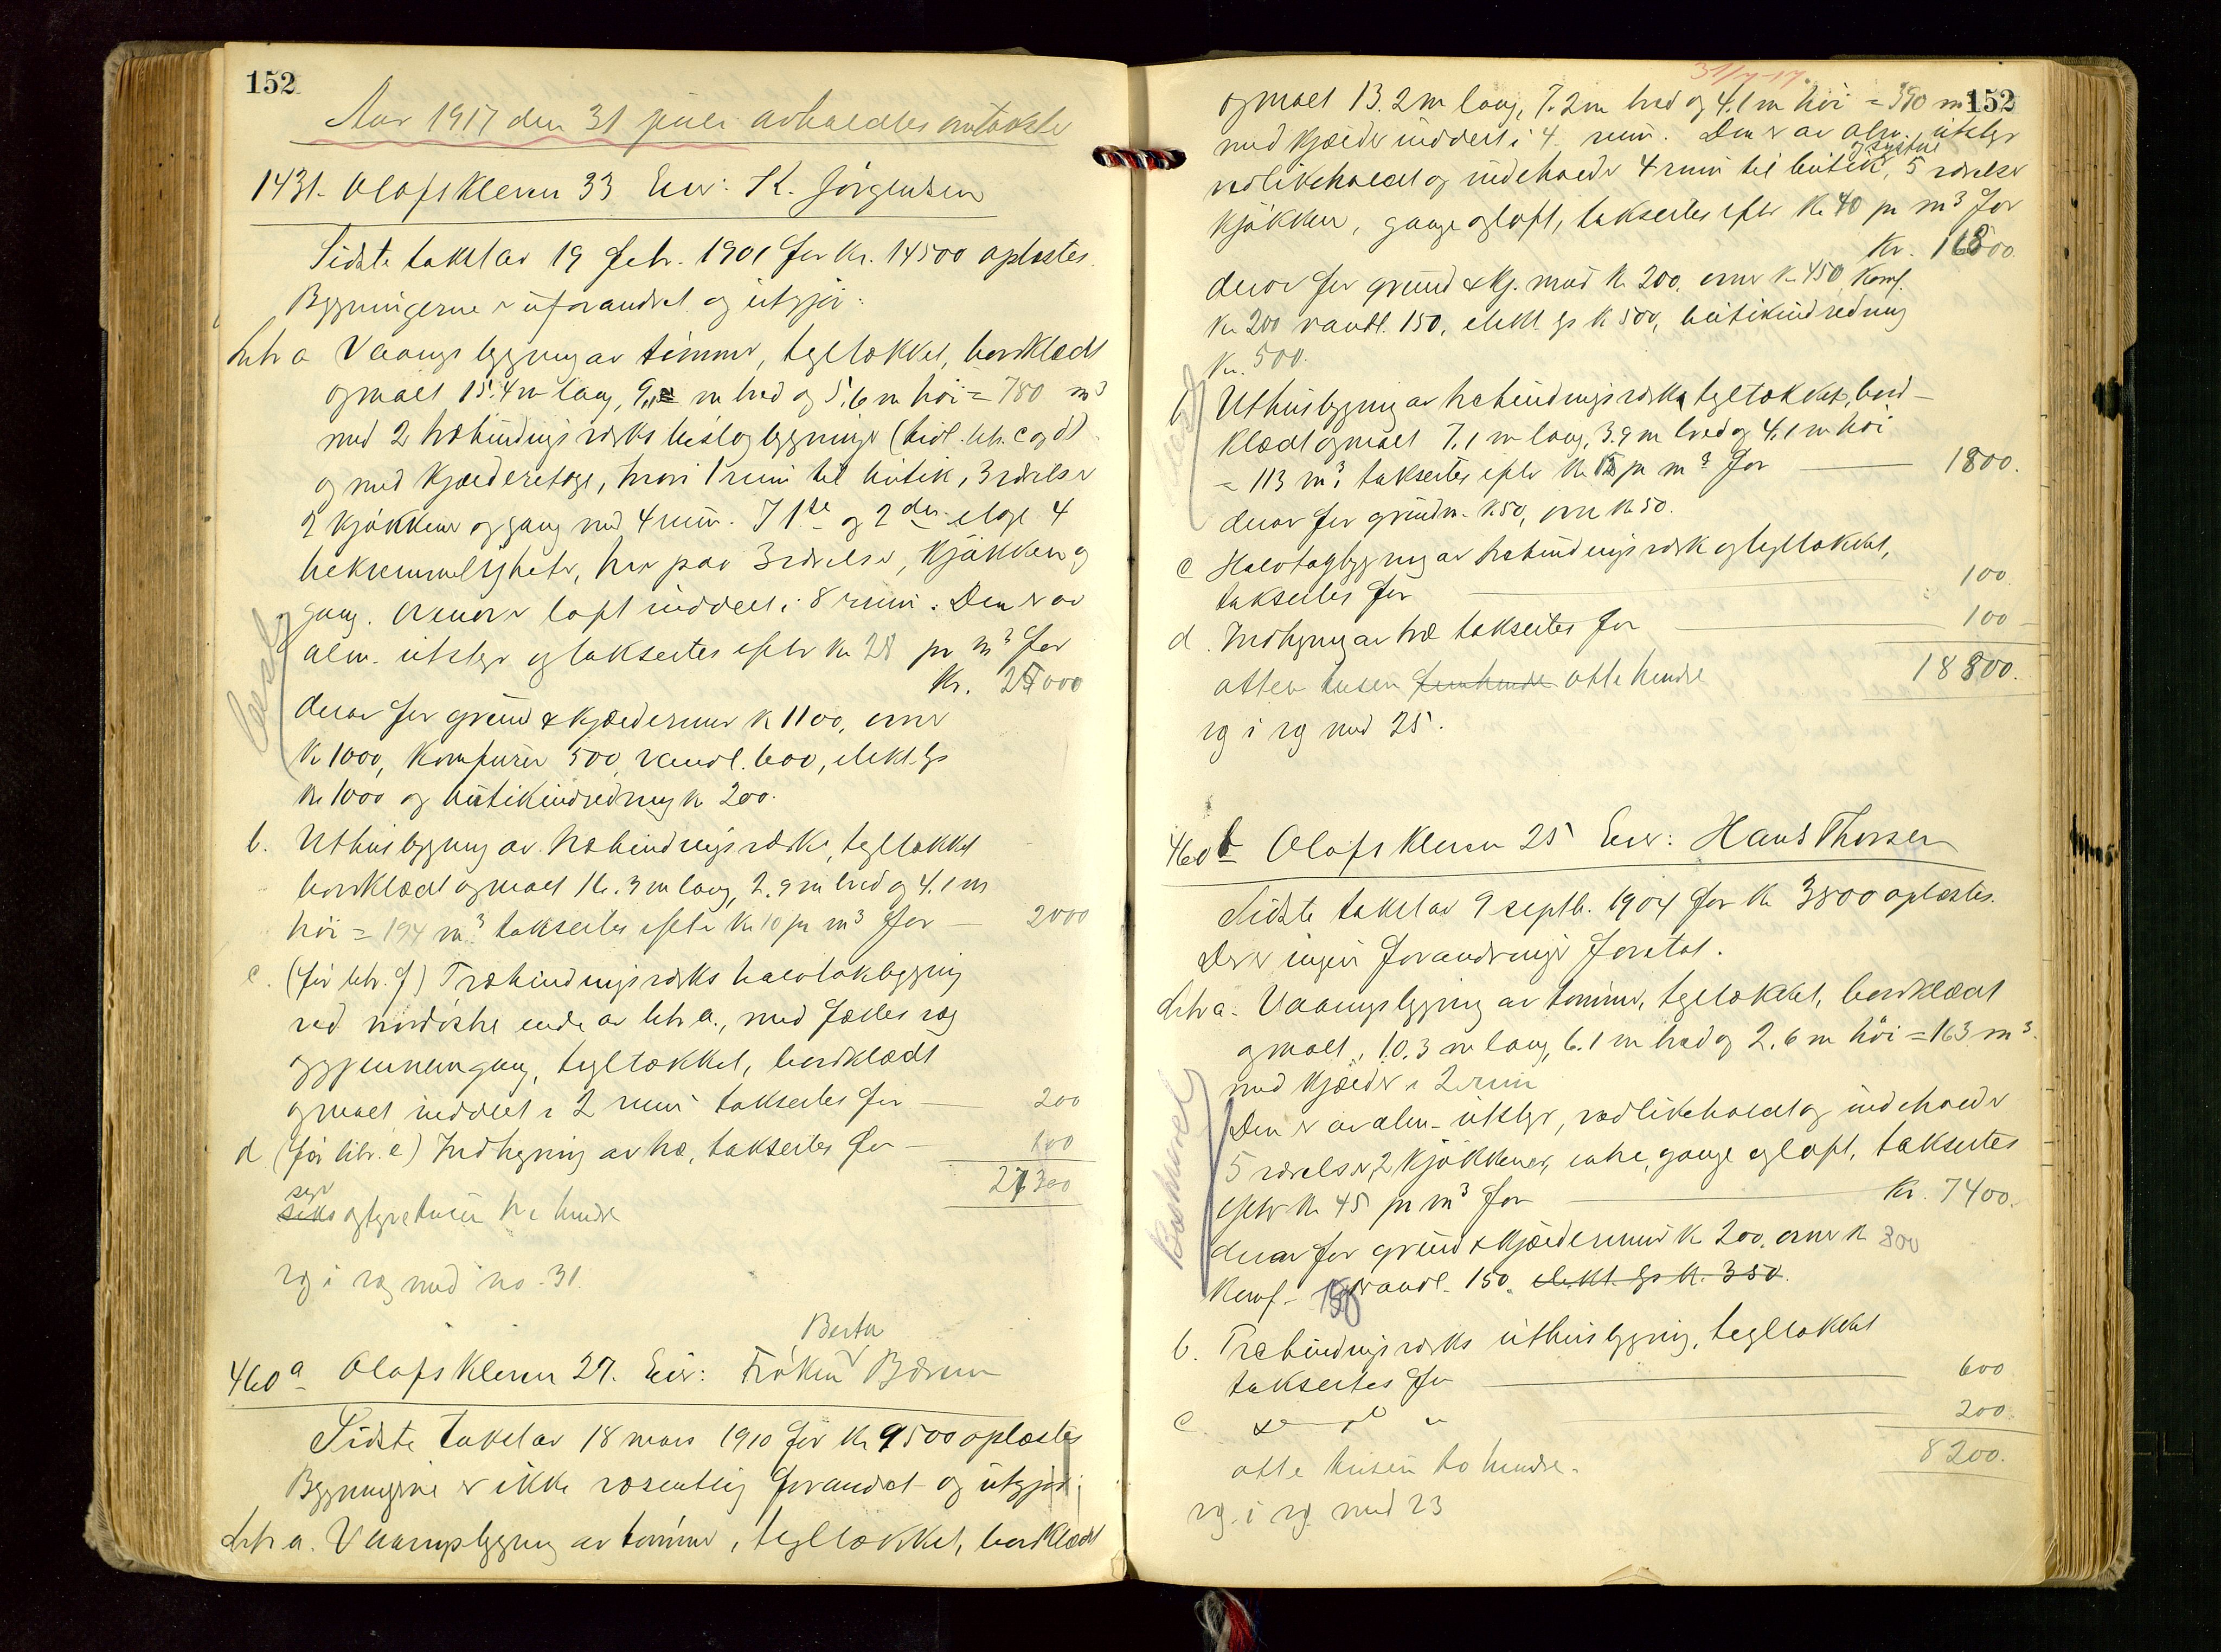 152
Aar 1917 den 31 juli avholdtes omtakster
1431. Olafskleven 33 Eier: K. Jörgensen
Sidste takst av 19 febr. 1901 for kr. 14500 oplæstes.
Bygningerne er uforandret og utgjör:
Litr a Vaaningsbygning av tömmer, tegltækket, bordklædt
og malt 15.4 m lang, 9 m bred og 5,6 m höi = 780 m³
med 2 træbindingsværks tilbygninger (tidl. litr. c og d)
og med kjælderetage, hvori 1 rum til butik, 3 værelser
2 kjökkener og gang med 4 rum. I 1ste og 2den etage 4
bekvemmeligheter, hver paa 3 værelser, kjökken og
gang. Ovenover loft inddelt i 8 rum. Den er av
alm. utstyr og takseres efter kr 28 pr m³ for
Kr. 25000
derav for grund & kjældermur kr 1100, ovner
kr 1000, komfurer 500, vandl. 600, elekt. lys
kr 1000 og butikindredning kr 200.
b. Uthusbygning av træbindingsværk, tegltækket
bordklædt og malt 16.3 m lang, 2.9 m bred og 4.1 m
höi = 194 m³ takseres efter kr 10 pr m³ for — 2000
c. (för litr. f) Træbindingsværks halvtakbygning
ved nordöstre ende av litr a., med fælles væg
og gjennemgang, tegltækket, bordklædt
og malt inddelt i 2 rum takseres for — 200
d (för litr. e) Indhegning av træ, takseres for — 100
27300
syv
seks og tyve tusen tre hundre
væg i væg med no. 31.
Berta
460a Olafskleven 27. Eier: Fröken Bærum
Sidste takst av 18 mars 1910 for kr 9500 oplæstes
Bygningerne er ikke væsentlig forandret og utgjör:
Litr a. Vaaningsbygning av tömmer, tegltækket, bordklædt
31/7-17.
152
og malt 13.2 m lang, 7.2 m bred og 4.1 m höi = 390 m³
med kjælder inddelt i 4 rum. Den er av alm. utstyr
og systue
vedlikeholdt og indeholder 4 rum til butik, 5 værelser
kjökken, gange og loft, takseres efter kr 40 pr m³ for
Kr. 16800.
derav for grund & kj. mur kr 200, ovner kr 450, komf.
kr 200 vandl. 150, elekt. lys kr 500, butikindredning
kr. 500.
b Uthusbygning av træbindingsværk, tegltækket, bord-
klædt og malt 7,1 m lang, 3.9 m bred og 4,1 m höi
= 113 m³ takseres efter kr pr m³ for — 1800.
derav for grundm. kr 50, ovn kr 50.
c Halvtagbygning av træbindingsværk og tegltækket,
takseres for — 100.
d. Indhegning av træ takseres for — 100
18800.
atten tusen fem hundre otte hundre
væg i væg med 25.
460b Olafskleven 25 Eier: Hans Thorsen
Sidste takst av 9 septb. 1904 for kr 3800 oplæstes.
Der er ingen forandringer foretat.
Litr a. Vaaningsbygning av tömmer, tegltækket, bordklædt
og malt, 10.3 m lang, 6.1 m bred og 2.6 m höi = 163 m³.
med kjælder i 2 rum
Den er av alm. utstyr, vedlikeholdt og indeholder
5 værelser, 2 kjökkener, entre, gange og loft, takseres
efter kr 45 pr m³ for — Kr. 7400.
derav for grund & kjældermur kr 200, ovner kr 300
Komf. 150 vandl. 150, elekt. lys kr. 350.
b. Træbindingsværks uthusbygning, tegltækket
takseres for — 600
c. — 200.
8200.
otte tusen to hundre.
væg i væg med 23